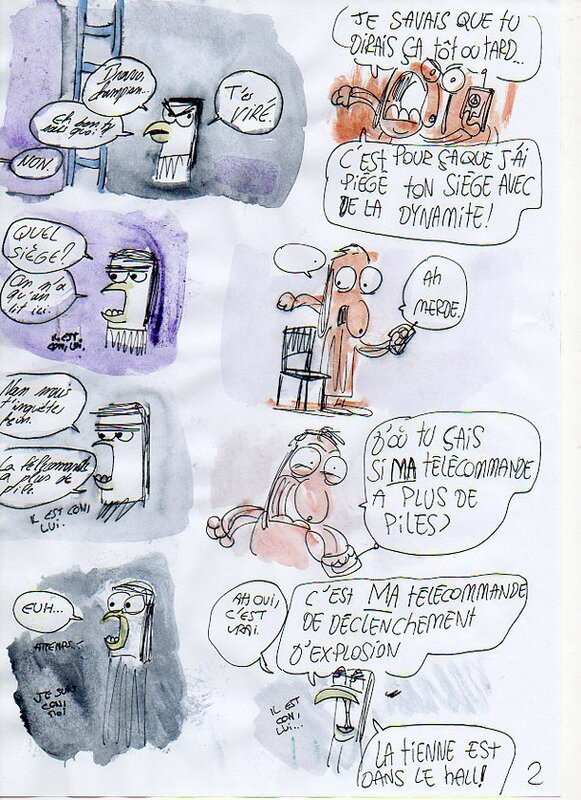 T'ES
VIRÉ.
Et ben tu
sais quoi?
NON.
JE SAVAIS QUE TU
DIRAIS ÇA TÔT OU TARD...
C'EST POUR ÇA QUE J'AI
PIÈGÉ TON SIÈGE AVEC
DE LA DYNAMITE!
QUEL
SIÈGE?
On n'a
qu'un
lit ici.
IL EST
CON, LUI.
Ah
MERDE.
Nan mais
t'inquète
La télécommande
a plus de
pile.
IL EST CON,
LUI.
D'OÙ TU SAIS
SI MA TÉLÉCOMMANDE
A PLUS DE
PILES?
EUH...
ATTENDS..
JE SUIS
CON,
MOI
AH OUI,
C'EST
VRAI.
C'EST MA TÉLÉCOMMANDE
DE DÉCLENCHEMENT
D'EXPLOSION
IL EST
CON,
LUI...
LA TIENNE EST
DANS LE HALL!
2